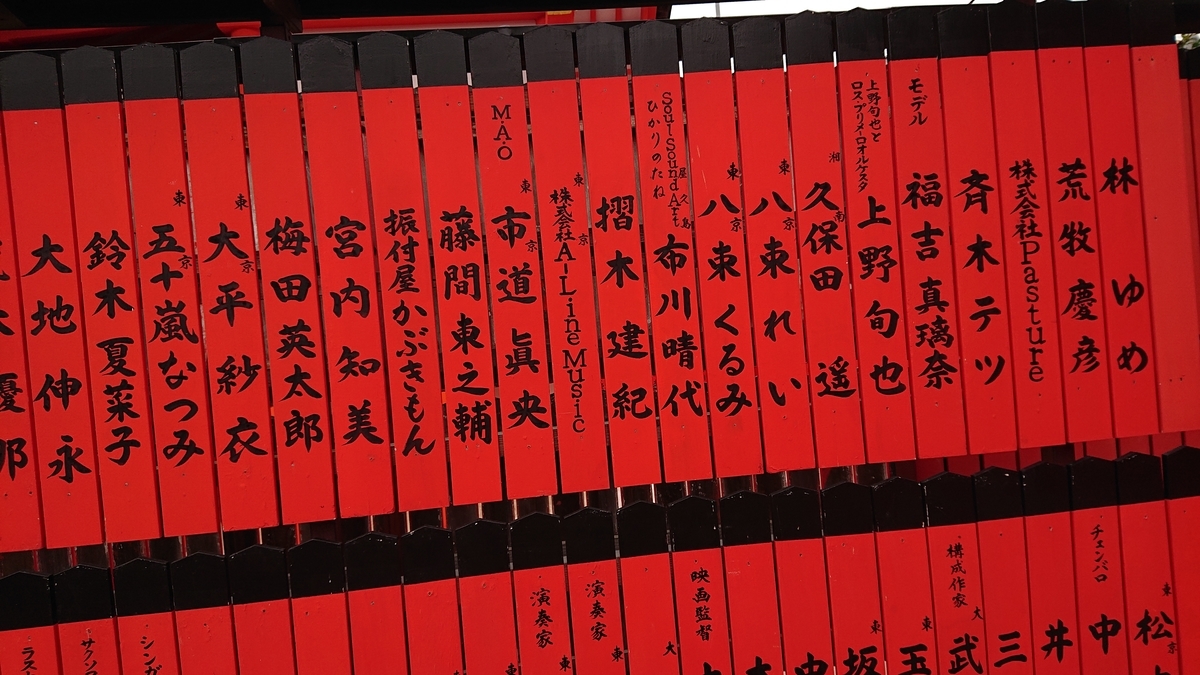 林 ゆめ
荒牧慶彦
株式会社Pasture
斉木テツ
モデル 福吉真璃奈
上野旬也と ロス・プリメーロオルケスタ 上野旬也
湘南 久保田 遥
東京 八束れい
東京 八束くるみ
屋久島 Soul Sound Art ひかりのたね 布川晴代
摺木建紀
東京 株式会社A-Line Music
M.A.O 東京 市道眞央
藤間東之輔
振付屋かぶきもん
宮内知美
梅田英太郎
東京 大平紗衣
東京 五十嵐なつみ
鈴木夏菜子
大地伸永
チェンバロ 中
東京 松
井
三
構成作家 大 武
東 玉
東 坂
映画監督 大
演奏家 東
演奏家 東
シンガ
サクソフ
ラス